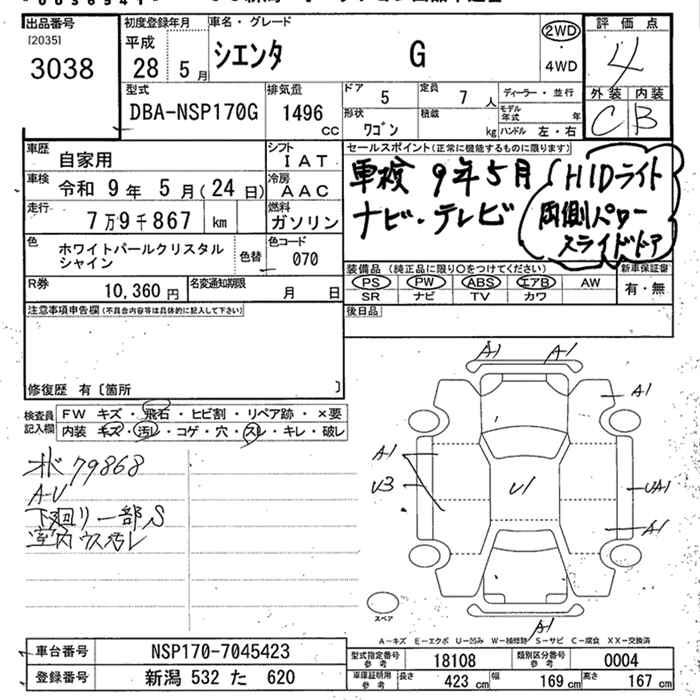 出品番号
[2035]
3038
初度登録年月
平成
28 5 月
車名・グレード
シエンタ G
2WD
・
4WD
評価点
4
外装 内装
C B
型式
DBA-NSP170G
排気量
1496
CC
ドア
5
定員
7 人
ディーラー・並行
形状
ワゴン
積載
kg
モデル
年式 年
ハンドル 左・右
車歴
自家用
シフト
IAT
車検
令和 9 年 5 月 (24 日)
冷房
AAC
走行
7 万 9 千 867 km
燃料
ガソリン
色
ホワイトパールクリスタル
シャイン
色替
色コード
070
R券
10,360 円
名変通知期限
月 日
セールスポイント(正常に機能するものに限ります)
車検 9年5月
ナビ・テレビ
HIDライト
両側パワー
スライドドア
装備品 (純正品に限り〇をつけてください)
新車保証書
PS PW ABS エアB AW
有・無
SR ナビ TV カワ
後日品
注意事項申告欄(不具合内容等は具体的に記入して下さい)
修復歴 有〔箇所 〕
検査員
記入欄
FW キズ・飛石・ヒビ割・リペア跡・×要
内装 キズ・汚レ・コゲ・穴・スレ・キレ・破レ
79868
A-U
下廻リ一部S
室内ウス汚レ
A1 A1
A1
A1
U3
U1
UA1
A1
A1
スペア
A-キズ E-エクボ U-凹み W-補修跡 S-サビ C-腐食 XX-交換済
車台番号
NSP170-7045423
登録番号
新潟 532 た 620
型式指定番号
参考
18108
類別区分番号
参考
0004
車庫証明用
参考
長さ
423 cm
幅
169 cm
高さ
167 cm